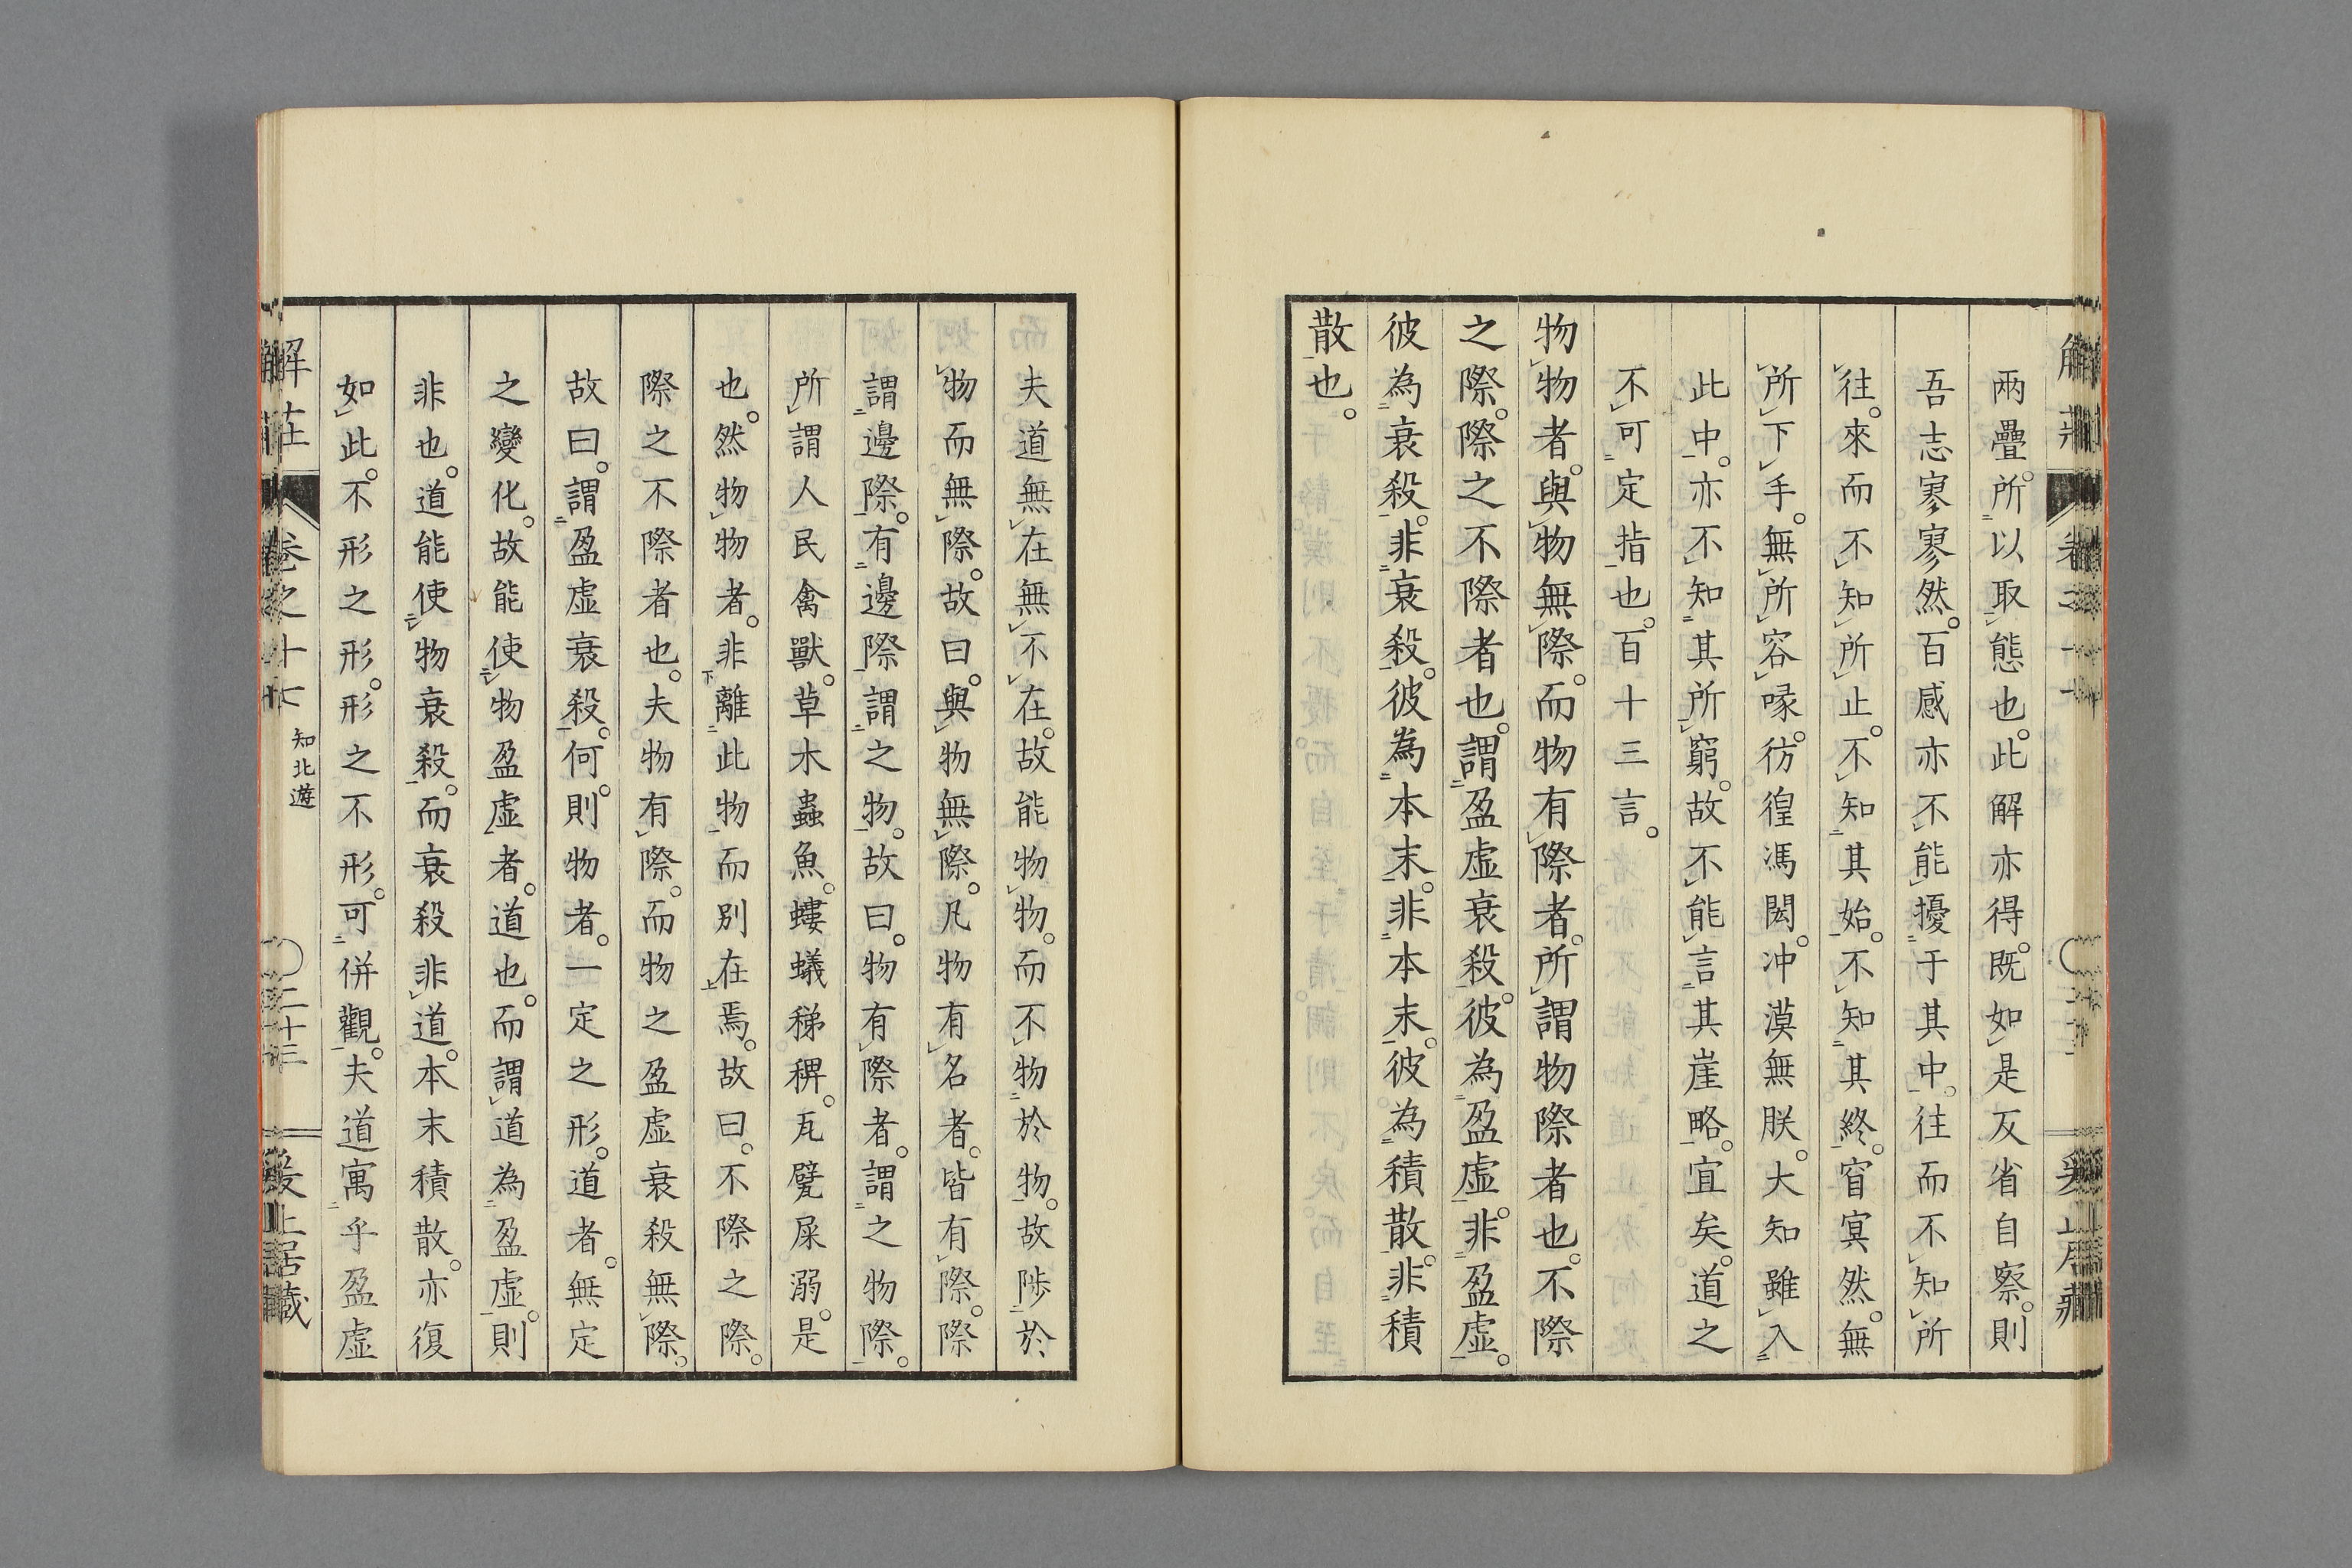 兩疊。所以取態也。此解亦得。既如是反省自察。則
吾志寥寥然。百感亦不能擾于其中。往而不知所
往。來而不知所止。不知其始。不知其終。窅冥然。無
所下手。無所容喙。彷徨馮閎。冲漠無朕。大知雖入
此中。亦不知其所窮。故不能言其崖略。宜矣。道之
不可定指也。百十三言。
物物者。與物無際。而物有際者。所謂物際者也。不際
之際。際之不際者也。謂盈虛衰殺。彼為盈虛。非盈虛。
彼為衰殺。非衰殺。彼為本末。非本末。彼為積散。非積
散也。
夫道無在無不在。故能物物。而不物於物。故陟於
物而無際。故曰。與物無際。凡物有名者。皆有際。際
謂邊際。有邊際謂之物。故曰。物有際者。謂之物際。
所謂人民禽獸。草木蟲魚。螻蟻稊稗。瓦甓屎溺。是
也。然物物者。非離此物而別在焉。故曰。不際之際。
際之不際者也。夫物有際。而物之盈虛衰殺無際。
故曰。謂盈虛衰殺。何。則物者。一定之形。道者。無定
之變化。故能使物盈虛者。道也。而謂道為盈虛。則
非也。道能使物衰殺。而衰殺非道。本末積散。亦復
如此。不形之形。形之不形。可併觀。夫道寓乎盈虛
解莊
卷之十七
知北遊
二十三